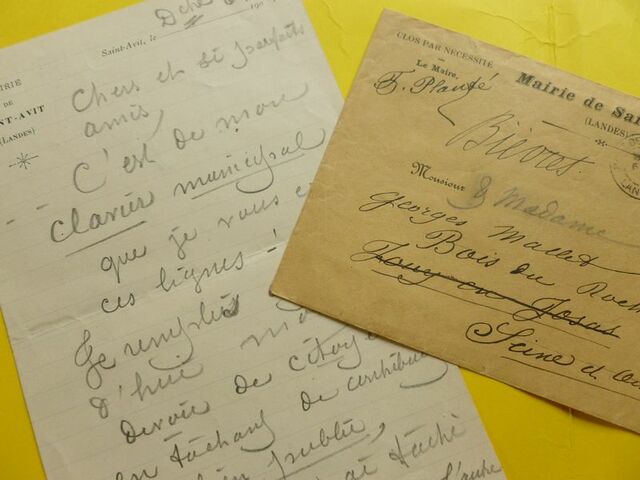 Saint-Avit, le 190
MAIRIE
DE
SAINT-AVIT
(LANDES)
Chers et si parfaits
amis,
C'est de mon
clavier municipal
que je vous
ces lignes !
Je remplis
d'hui
devoir de
en tâchant de
public,
tâché
l'autre
CLOS PAR NÉCESSITÉ
Le Maire,
F. Planté
Mairie de Sai
(LANDES)
Bièvres
Monsieur & Madame
Georges Mallet
Bois du Roch
Jouy en Josas
Seine et